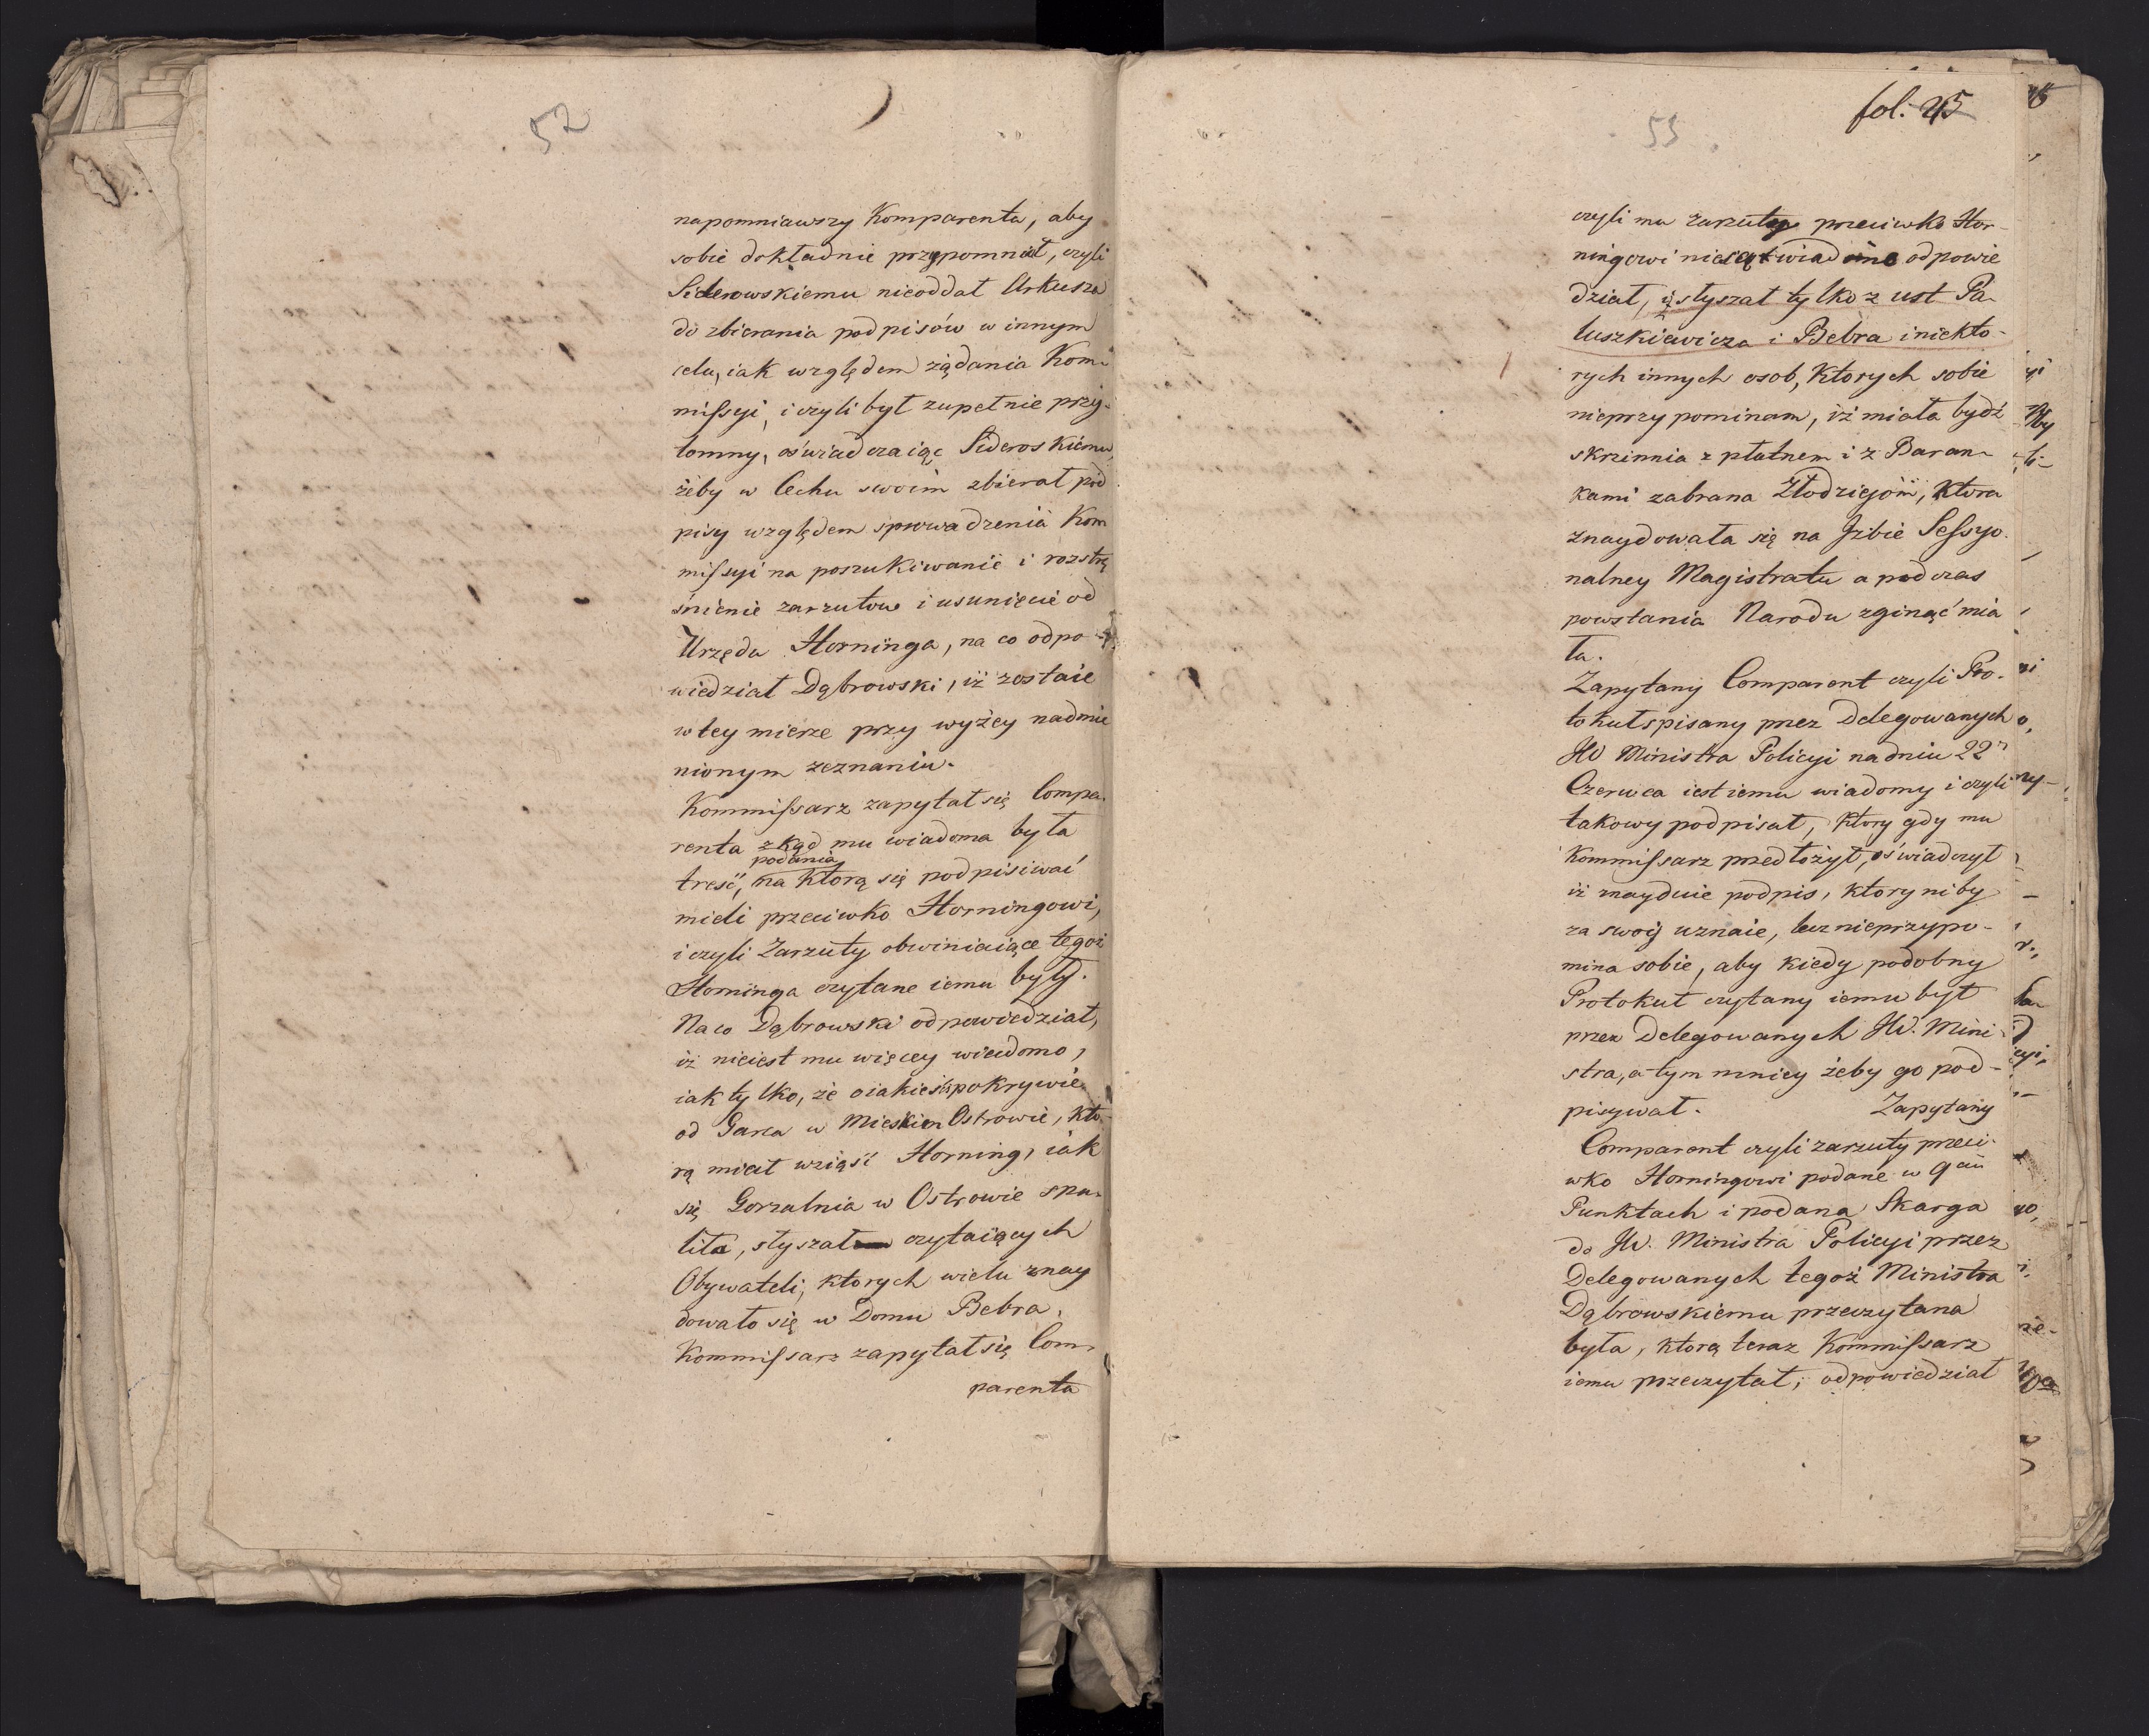 52
napomniawszy Komparenta, aby
sobie dokładnie przypomniał, czyli
Siderowskiemu nieoddał Arkusza
do zbierania podpisów w innym
celu, iak względem żądania Kom-
missyi, i czyli był zupełnie przy-
tomny, oświadczaiąc Sideroskiemu,
żeby w Cechu swoim zbierał pod
pisy względem sprowadzenia Kom
missyi na poszukiwanie i roztrzą
śnienie zarzutow i usunięcie od
Urzędu Horninga, na co odpo-
wiedział Dąbrowski, iż zostaie
w tey mierze przy wyżey nadmie
nionym zeznaniu.
Kommissarz zapytał się Compa-
renta zkąd mu wiadoma była
podania
treść, na ktorą się podpisiwać
mieli przeciwko Horningowi,
i czyli Zarzuty obwiniaiące tegoż
Horninga czytane iemu były.
Na co Dąbrowski odpowiedział,
iż nieiest mu więcey wiadomo,
iak tylko, że o iakieiś pokrywie
od Garca w Mieskim Ostrowie, kto-
rą miał wziąść Horning, iak
się Gorzalnia w Ostrowie spa-
liła, słyszał czytaiących
Obywateli, ktorych wielu znay
dowało się w Domu Bebra.
Kommissarz zapytał się Com-
parenta
fol. 45
53
czyli mu zarzuty przeciwko Hor-
ningowi niesą wiadome odpowie
dział, iż słyszał tylko z ust Pa-
luszkiewicza i Bebra i niekto-
rych innych osob, ktorych sobie
nieprzypominam, iż miała bydź
skrzinnia z płatnem i z Baran-
kami zabrana Złodziejom, ktora
znaydowała się na Izbie Sessyo-
nalney Magistratu a podczas
powstania Narodu zginąć mia
ła.
Zapytany Comparent czyli Pro-
tokuł spisany przez Delegowanych
JW Ministra Policyi na dniu 22
Czerwca iest iemu wiadomy i czyli
takowy podpisał, ktory gdy mu
Kommissarz przedłożył, oświadczył
iż znayduie podpis, ktory niby
za swoij uznaie, lecz nieprzypo-
mina sobie, aby kiedy podobny
Protokuł czytany iemu był
przez Delegowanych JW. Mini-
stra, a tym mniey żeby go pod-
pisywał. Zapytany
Comparent czyli zarzuty przeci-
wko Horningowi podane w 9
Punktach i podana Skarga
do JW. Ministra Policyi przez
Delegowanych tegoż Ministra
Dąbrowskiemu przeczytana
była, ktorą teraz Kommissarz
iemu przeczytał, odpowiedział